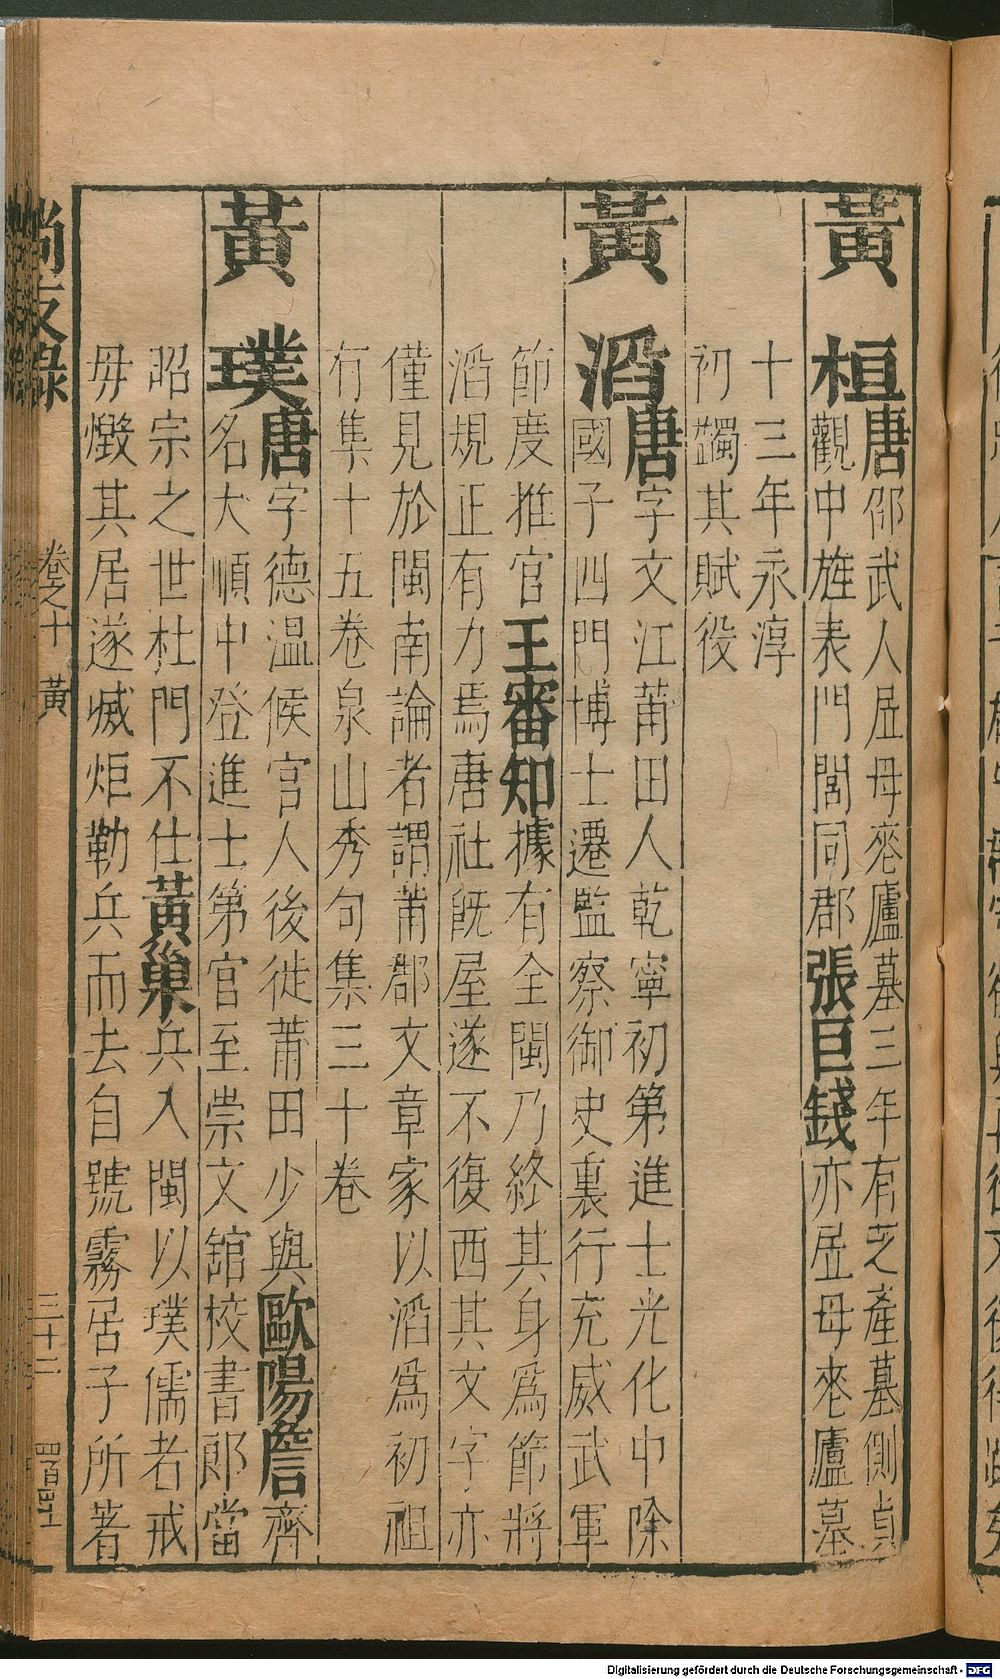 黃桓唐邵武人居母喪廬墓三年有芝產墓側貞
觀中旌表門閭同郡張巨錢亦居母喪廬墓
十三年永淳
初蠲其賦役
黃滔唐字文江莆田人乾寧初第進士光化中除
國子四門博士遷監察御史裏行充威武軍
節度推官王審知據有全閩乃終其身爲節將
滔規正有力焉唐社旣屋遂不復西其文字亦
僅見於閩南論者謂莆郡文章家以滔爲初祖
有集十五卷泉山秀句集三十卷
黃璞唐字德温候官人後徙莆田少與歐陽詹齊
名大順中登進士第官至崇文舘校書郎當
昭宗之世杜門不仕黃巢兵入閩以璞儒者戒
毋燬其居遂滅炬勒兵而去自號霧居子所著
尚友錄
卷之十
黃
三十二
Digitalisierung gefördert durch die Deutsche Forschungsgemeinschaft - DFG